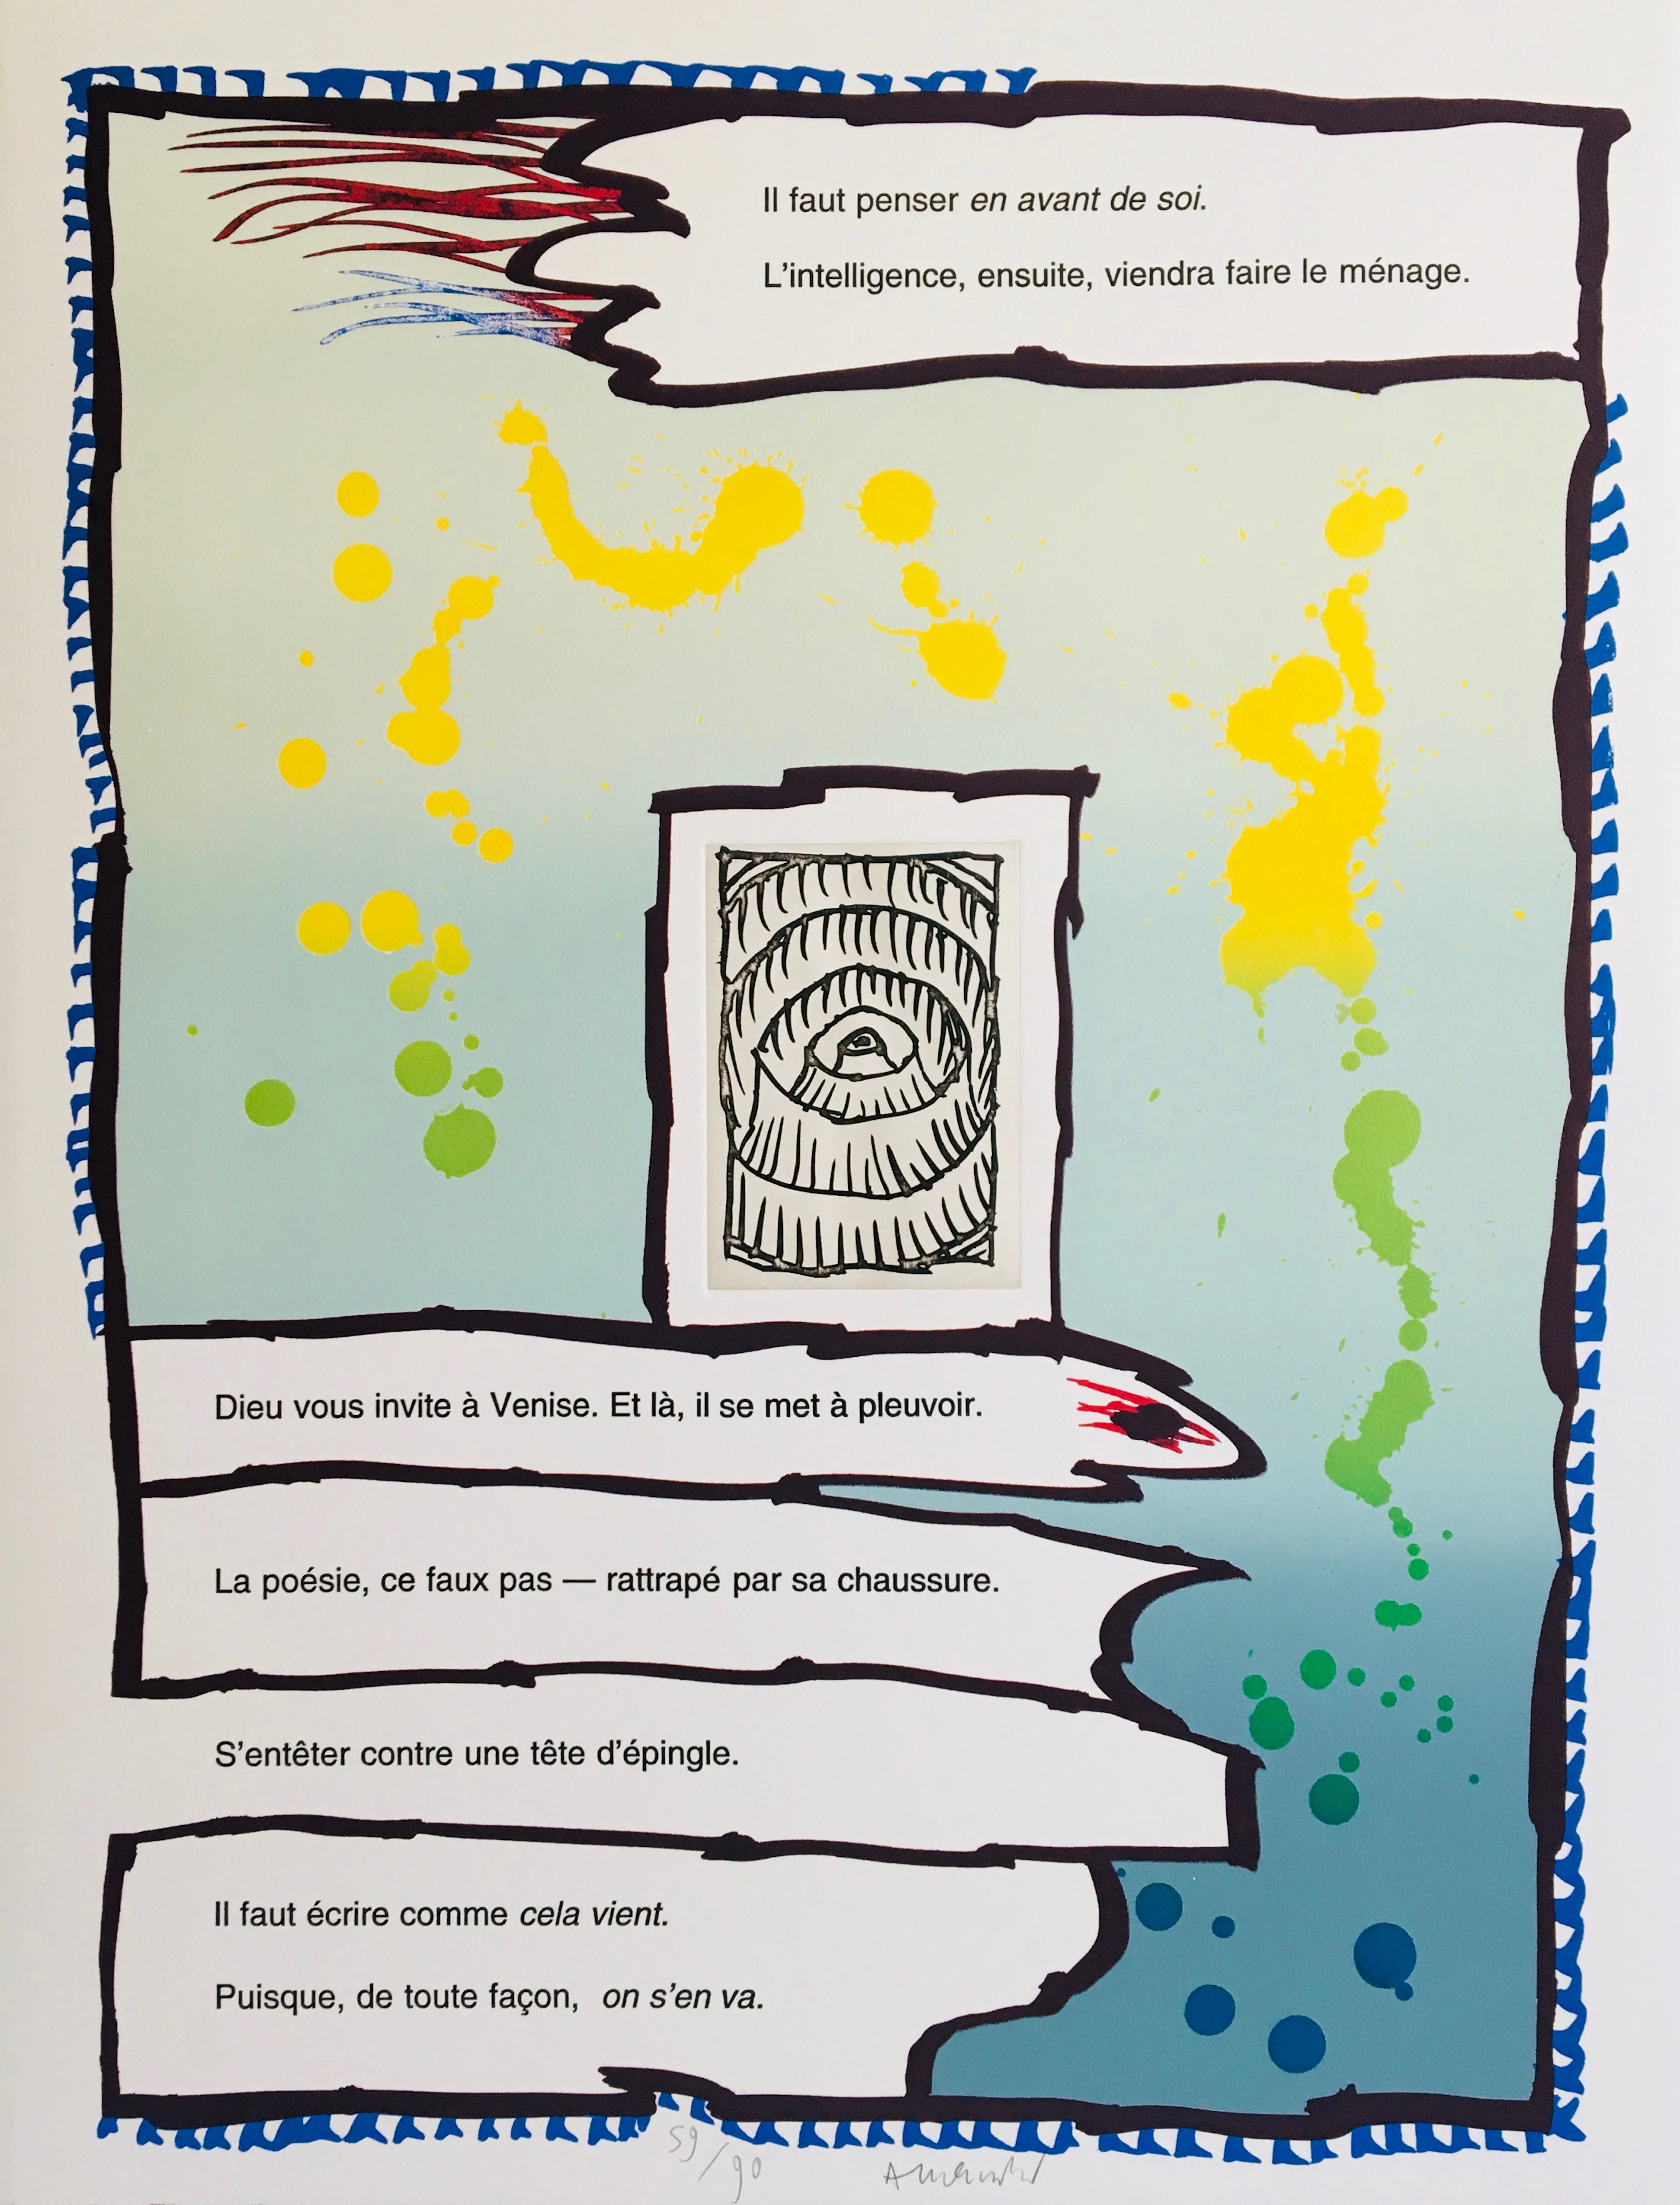 Il faut penser en avant de soi.
L'intelligence, ensuite, viendra faire le ménage.
Dieu vous invite à Venise. Et là, il se met à pleuvoir.
La poésie, ce faux pas — rattrapé par sa chaussure.
S'entêter contre une tête d'épingle.
Il faut écrire comme cela vient.
Puisque, de toute façon, on s'en va.
59/90